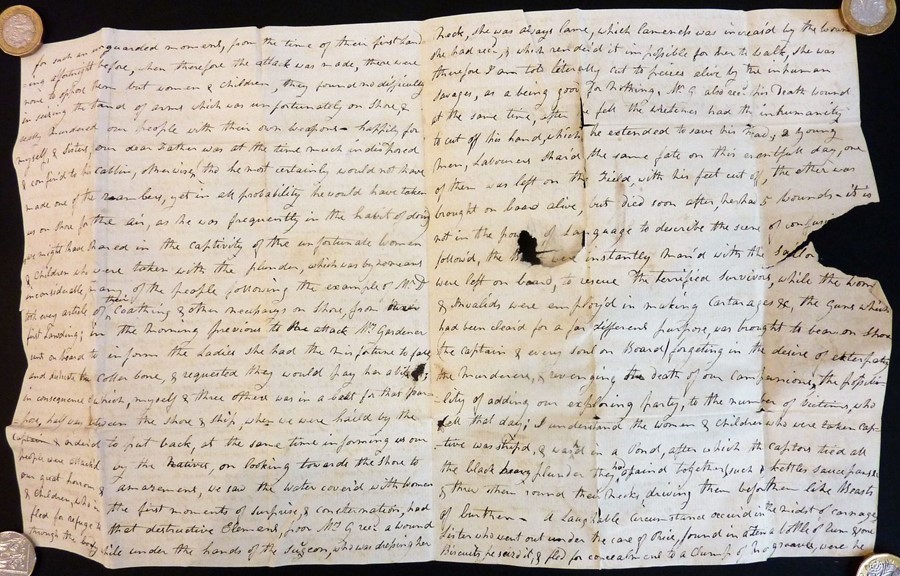 for such an unguarded moment, from the time of their first land
ing a fortnight before, when therefore the attack was made, there were
none to oppose them but women & children, they found no difficulty
in seizing the stand of arms which was unfortunately on Shore, &
our people with their own weapons - happily for
myself & Sisters, our dear Father was at the time much indisposed
& confin'd to his cabbin, otherwise he most certainly would not have
made one of the number, yet in all probability he would have taken
us on shore for the air, as he was frequently in the habit of doing
we might have shared in the captivity of the unfortunate women
& children who were taken with the plunder, which was by no means
inconsiderable, many of the people following the example of Mr D
took every article of their Cloathing & other on Shore, from
first Landing; in the morning previous to the attack Mrs Gardener
sent on board to inform the Ladies she had the misfortune to fall
and the collar bone, & requested they would pay her a visit;
in consequence of which, myself & three others was in a boat for that pur-
pose, half way between the shore & ship, when we were hail'd by the
Captain & order'd to put back, at the same time informing us our
people were attack'd by the Natives, on looking towards the shore to
our great horror & amazement, we saw the water cover'd with women
& children, who in the first moments of surprise, & consternation, had
fled for refuge to that destructive Element, poor Mrs G rec'd a wound
through the body while under the hands of the Surgeon, who was dressing her
Neck, she was always lame, which lameness was increas'd by the wound
she had rec'd, & which render'd it impossible for her to walk, she was
therefore I am told literally cut to peices alive by the inhuman
Savages, as a being good for Nothing, Mr G also rec'd his Death wound
at the same time, after he fell the wretches had the inhumanity
to cut off his hand, which he extended to save his head, 2 young
Men, Labourers shar'd the same fate on this eventfull day, one
of them was left on the Field, with his feet cut off, the other was
brought on board alive, but died soon after, perhaps 5 wounds it is
not in the power of Language to describe the scene of confusion
follow'd, the were instantly man'd with the Sailors
were left on board, to rescue the terrified survivors, while the Women
& Invalids were employ'd in making Cartarages &c, the Guns which
had been clear'd for a far different purpose, was brought to bear on Shore
the captain & every soul on Board, forgeting in the desire of exterpating
the Murderers, & revenging the death of our Companions, the possibi-
lity of adding our exploring party, to the number of Victims, who
fell that day; I understand the women & Children who were taken cap-
tive was strip'd, & wash'd in a Pond, after which the captors tied all
the black heavy plunder they had obtain'd together, (such as kettles saucepans &c
& threw them round their Necks, driving them before them like Beasts
of burthen - a Laughable circumstance occur'd in the midst of carnage
Sister who went out under the care of Price, found in a tent a bottle of Rum & some
Biscuits, he seiz'd it, & fled for concealment to a clump of Mangroves, were he